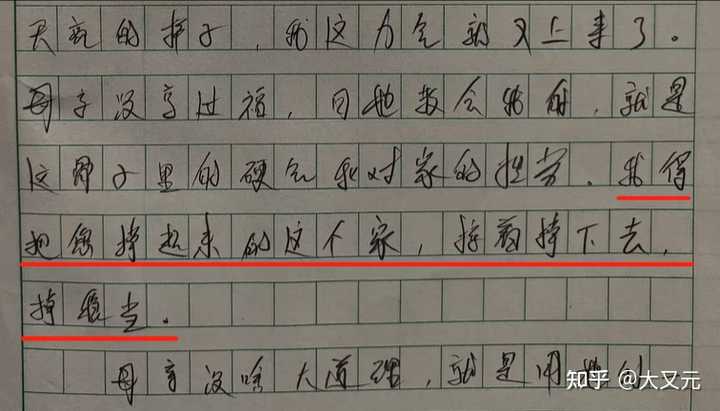 天亮的挣子，我这力气就又上来了。
母子没享过福，可她教会我的，就是
这脚子里的硬气和对家的担当。我得
把您撑起来的这个家，接着撑下去，
撑稳当。
母亲没啥大道理，就是用她的
知乎 @大又元